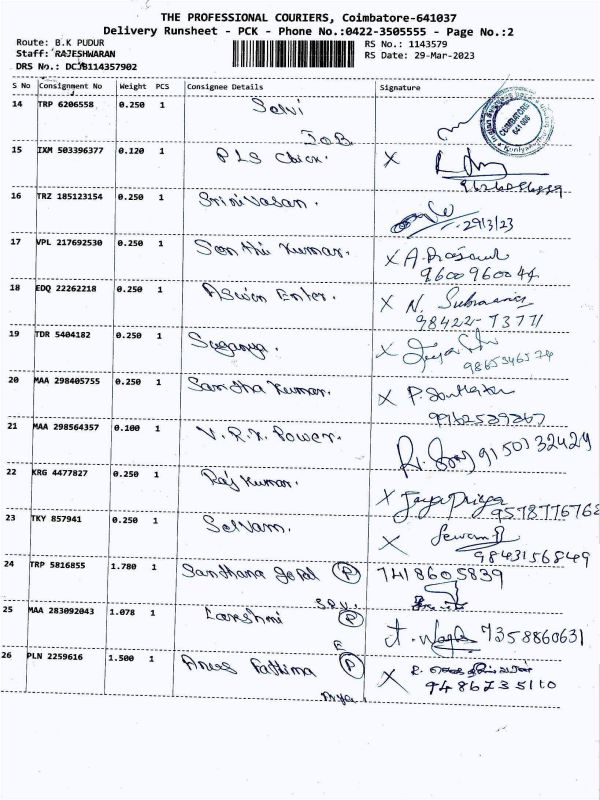 THE PROFESSIONAL COURIERS, Coimbatore-641037
Delivery Runsheet - PCK - Phone No.:0422-3505555 - Page No.:2
Route: B.K PUDUR
RS No.: 1143579
Staff: RAJESHWARAN
RS Date: 29-Mar-2023
DRS No.: DCJB114357902
S No Consignment No Weight PCS Consignee Details Signature
14 TRP 6206558 0.250 1 Selvi
COIMBATORE 641 008
15 IXM 503396377 0.120 1 PLS Chick. X
16 TRZ 185123154 0.250 1 Srinivasan.
29/3/23
17 VPL 217692530 0.250 1 Senthil Kumar. X A. Prasanth
9600960044
18 EDQ 22262218 0.250 1 Aswin Enter. X N.
98422-73771
19 TDR 5404182 0.250 1 Suganya. X
9865346574
20 MAA 298405755 0.250 1 Santha Kumar. X P.
9962539367
21 MAA 298564357 0.100 1 V.R.K. Power. 9150132429
22 KRG 4477827 0.250 1 Raj Kumar. X Jayapriya
9578776768
23 TKY 857941 0.250 1 Selvam. X
9843156849
24 TRP 5816855 1.780 1 Santhana Gopal P 7418605839
25 MAA 283092043 1.078 1 Lakshmi P 7358860631
26 PLN 2259616 1.500 1 Aness Fathima P X
9486235110